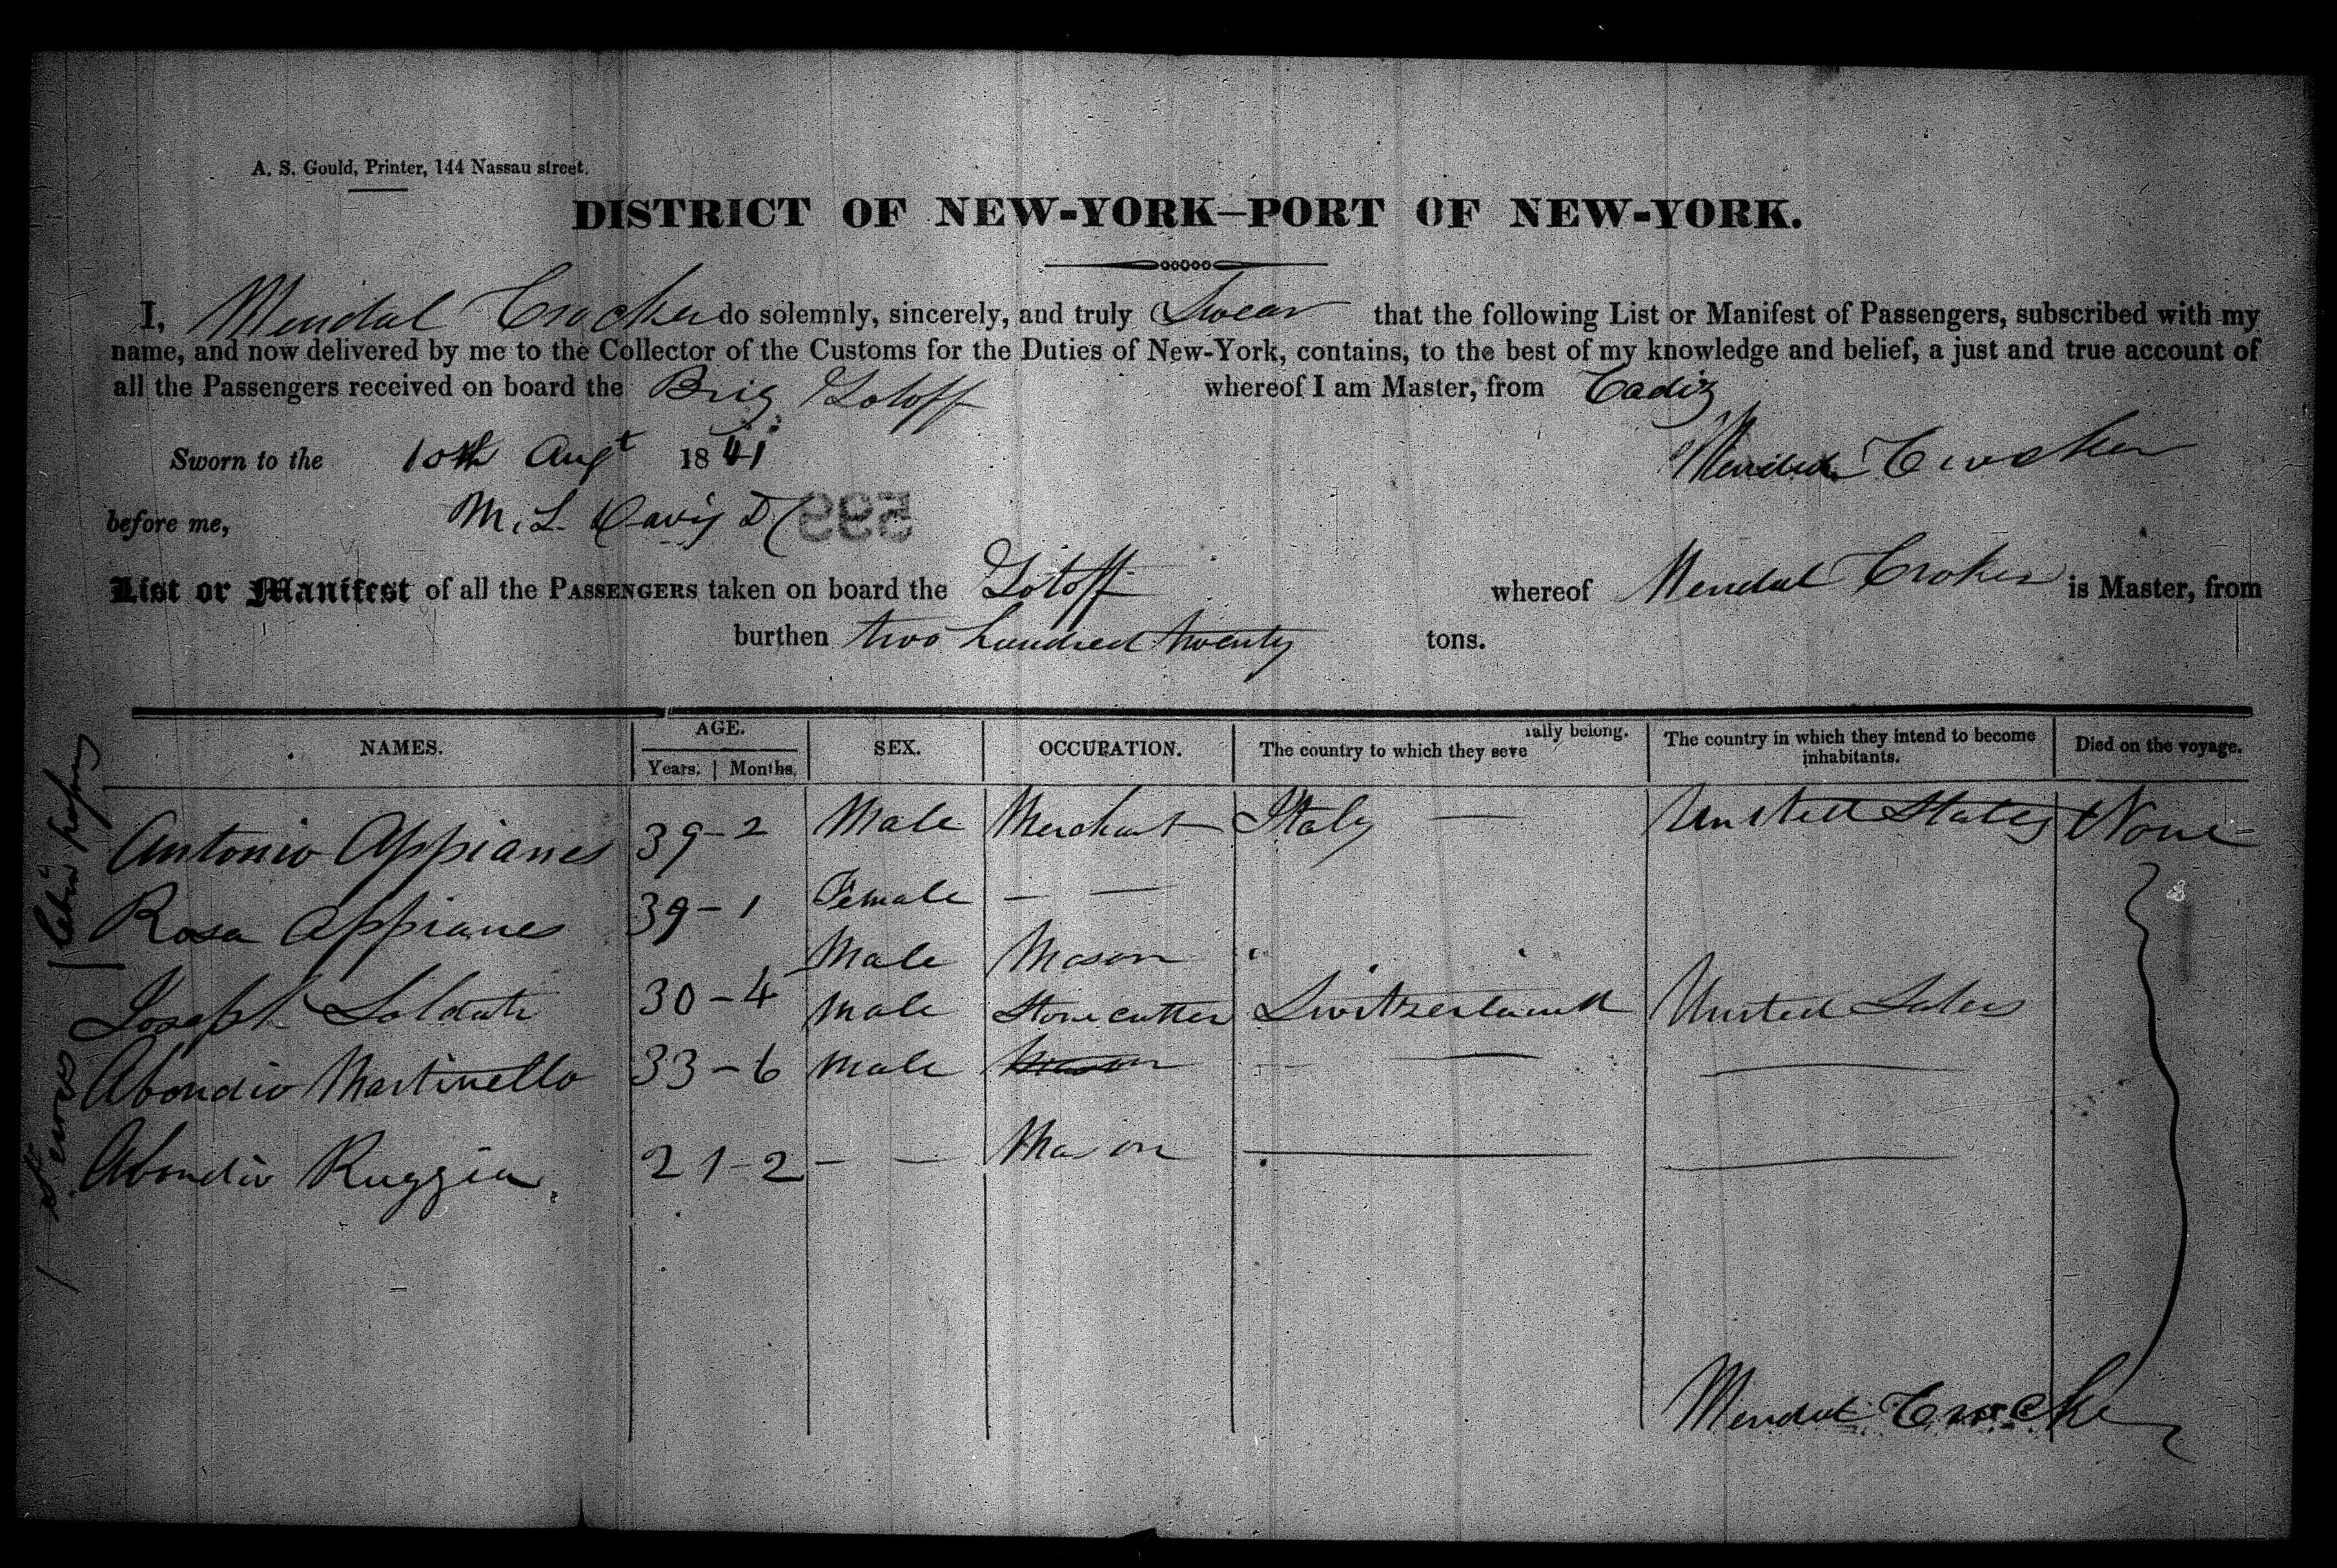 A. S. Gould, Printer, 144 Nassau street.
DISTRICT OF NEW-YORK—PORT OF NEW-YORK.
I, Mendal Crocker do solemnly, sincerely, and truly Swear that the following List or Manifest of Passengers, subscribed with my
name, and now delivered by me to the Collector of the Customs for the Duties of New-York, contains, to the best of my knowledge and belief, a just and true account of
all the Passengers received on board the Brig Lotoff whereof I am Master, from Cadiz
Sworn to the 10th Augt 1841 Mendal Crocker
before me, M. L. Davis D C 599
List or Manifest of all the PASSENGERS taken on board the Lotoff whereof Mendal Croker is Master, from
burthen two hundred twenty tons.
NAMES. AGE. Years. Months. SEX. OCCUPATION. The country to which they seve rally belong. The country in which they intend to become inhabitants. Died on the voyage.
Antonio Appianes 39-2 Male Merchant Italy — United States None
Rosa Appianes 39-1 Female — —
Joseph Soldati 30-4 Male Mason "
Abondio Martinello 33-6 Male Stonecutter Switzerland United States
Male Mason
Abondio Ruggia. 21-2 — — Mason
Mendal Crocker